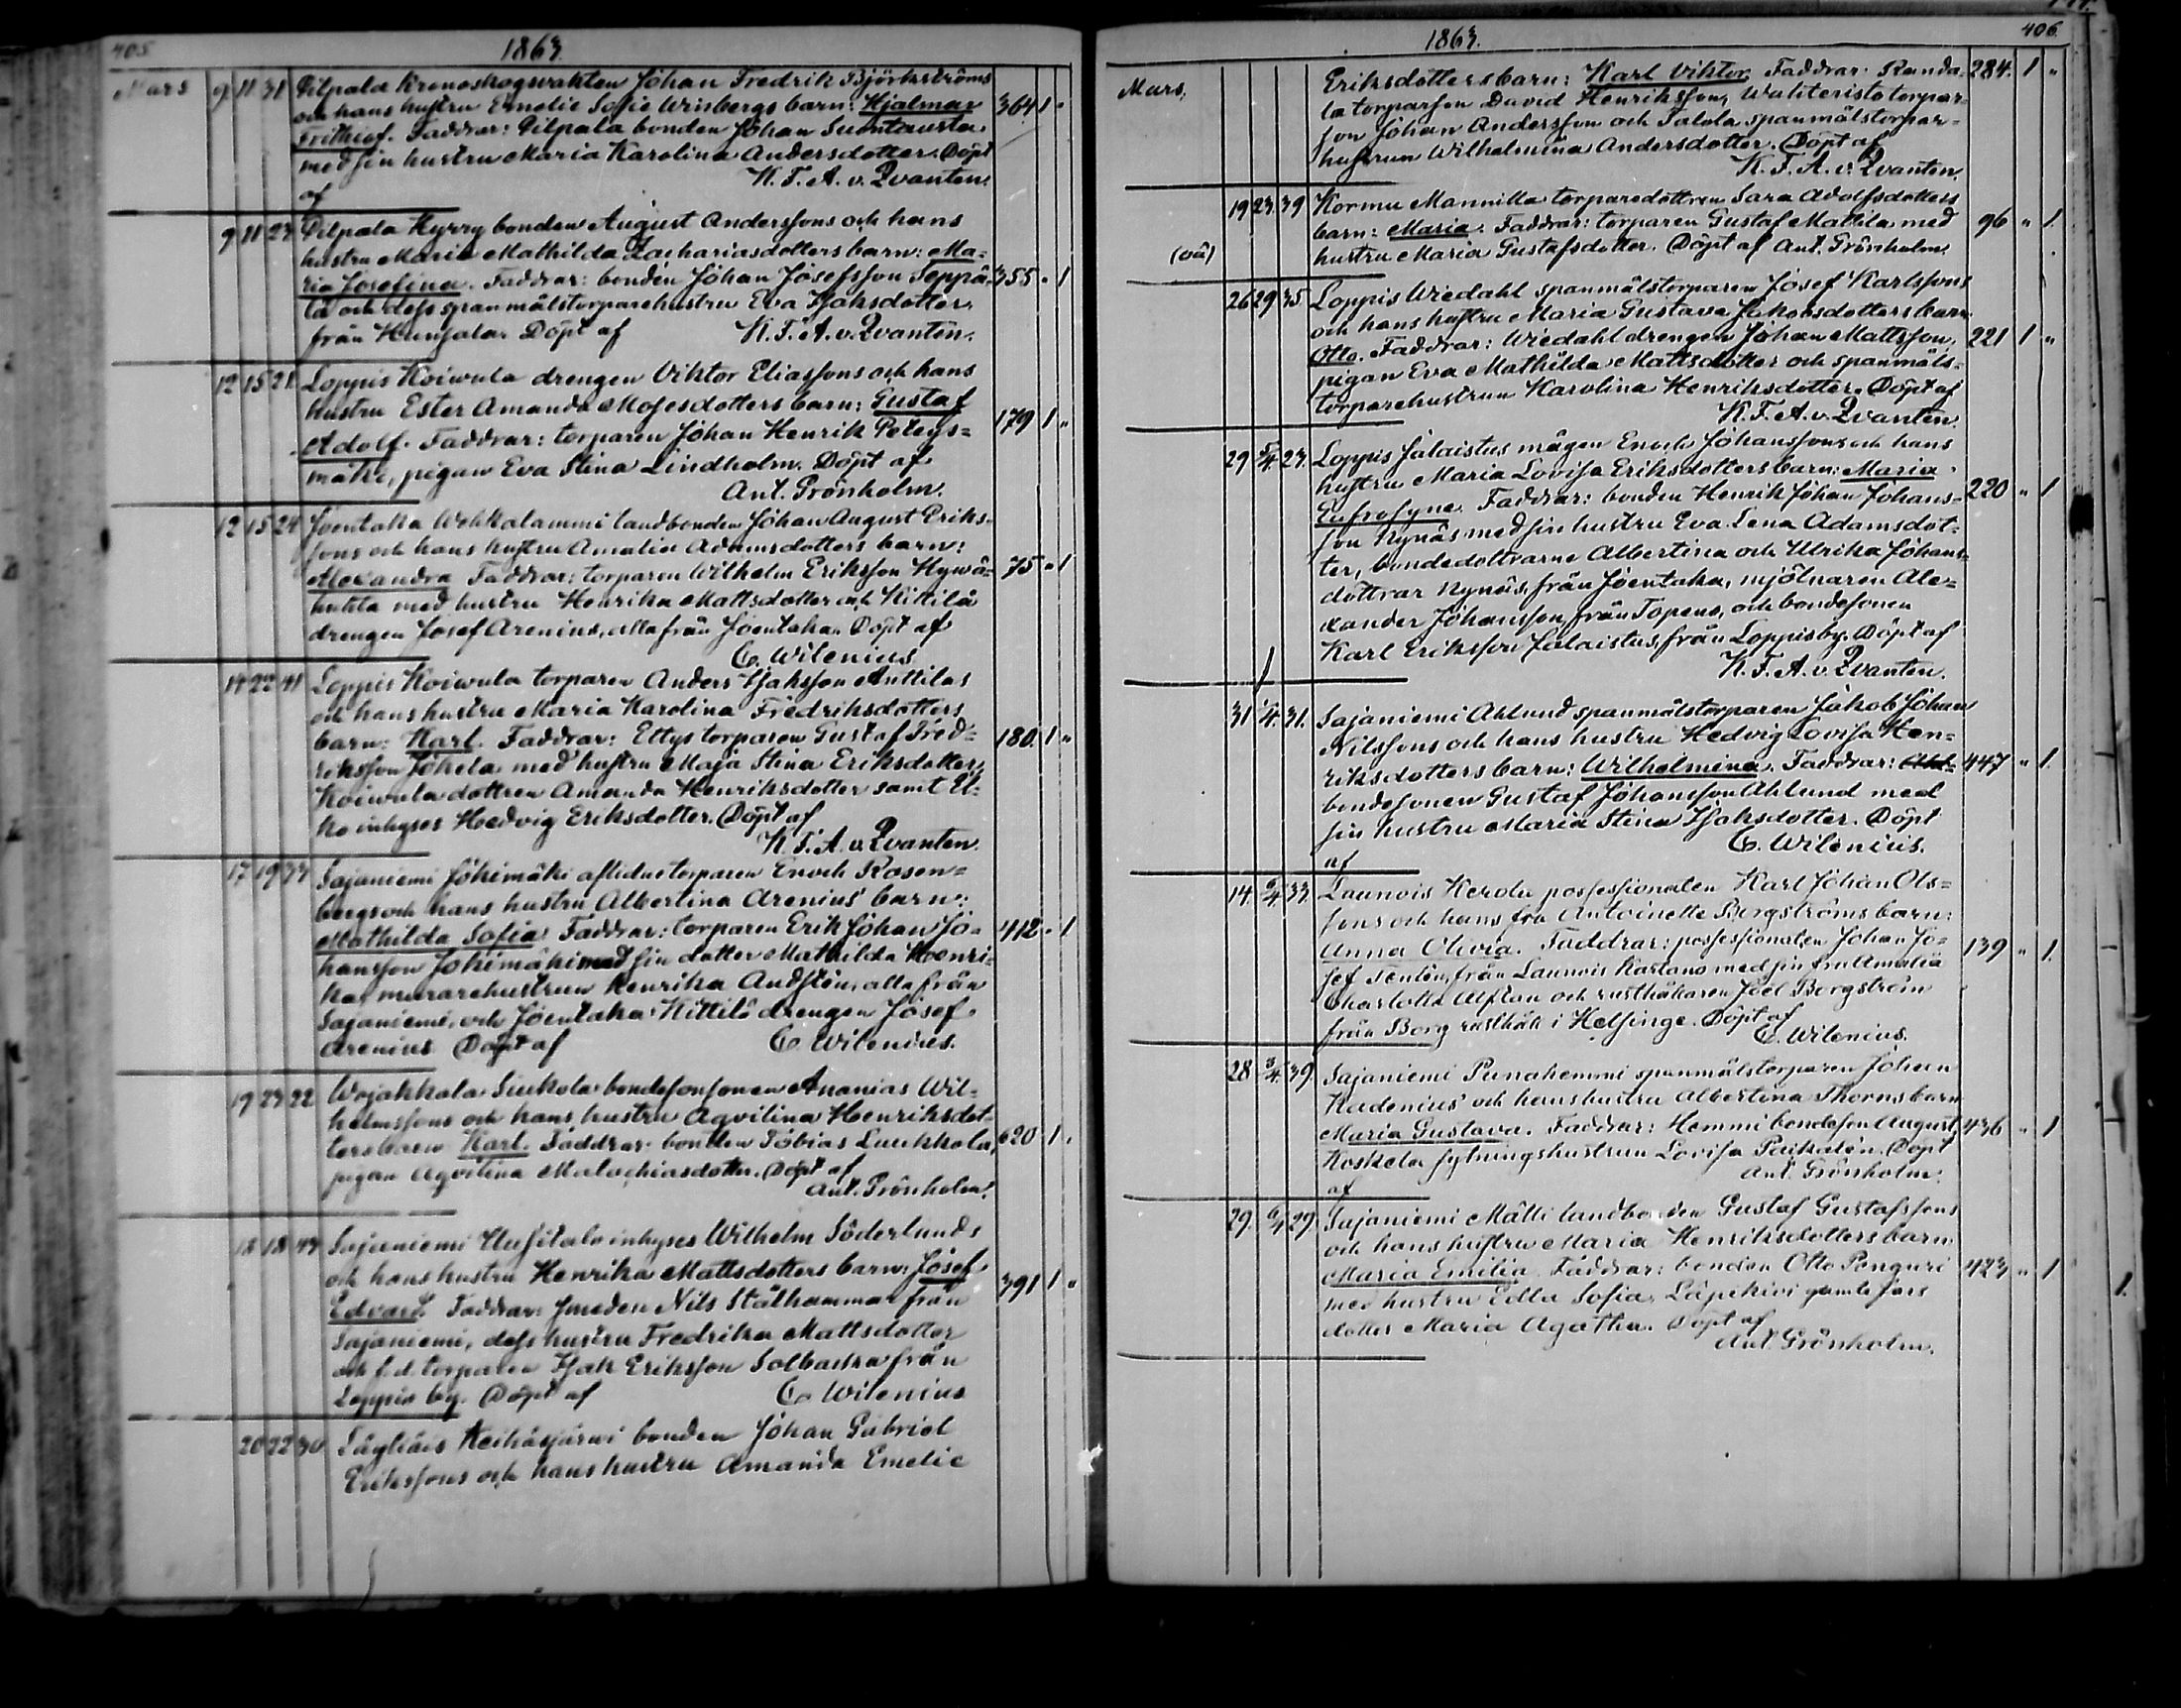 405
1863.
Mars 9 11 31 Pilpala kronoskogwakten Johan Fredrik Björkströms
och hans hustru Emelie Sofie Wrisbergs barn: Hjalmar 364 1 "
Frithiof. Faddrar: Pilpala bonden Johan Suontausta
med sin hustru Maria Karolina Andersdotter. Döpt
af K. F. A. v. Qvanten.
9 11 23 Pilpala Kyrry bonden August Anderssons och hans
hustru Maria Mathilda Zachariasdotters barn: Ma-
ria Josefina. Faddrar: bonden Johan Josefsson Seppä- 355 " 1
lä och dess spanmålstorparehustru Eva Isaksdotter
från Hunsala. Döpt af K. F. A. v. Qvanten.
12 15 21 Loppis Koiwula drengen Viktor Eliassons och hans
hustru Ester Amanda Mosesdotters barn: Gustaf
Adolf. Faddrar: torparen Johan Henrik Peteys= 179 1 "
mäki, pigan Eva Stina Lindholm. Döpt af
Ant. Grönholm.
12 15 24 Joentaka Wehkalammi landbonden Johan August Eriks-
sons och hans hustru Amalia Adamsdotters barn:
Alexandra Faddrar: torparen Wilhelm Eriksson Hywä- 75 " 1
hutta med hustru Henrika Mattsdotter och Kittilä
drengen Josef Arenius, alla från Joentaka. Döpt af
C. Wilenius
14 22 41 Loppis Koiwula torparen Anders Isaksson Anttilas
och hans hustru Maria Karolina Fredriksdotters
barn: Karl. Faddrar: Ettys torparen Gustaf Fred= 180. 1 "
riksson Jokela med hustru Maja Stina Eriksdotter,
Koiwula dottren Amanda Henriksdotter samt El-
ko inhyses Hedvig Eriksdotter. Döpt af
K. F. A. v. Qvanten.
17 19 33 Sajaniemi Jokimäki aflidne torparen Enoch Rosen=
bergs och hans hustru Albertina Arenius' barn:
Mathilda Sofia Faddrar: torparen Erik Johan Jo= 412 " 1
hansson Jokimäki med sin dotter Mathilda Henri=
ka, murarehustrun Henrika Andstén, alla från
Sajaniemi, och Joentaka Kittilä drengen Josef
Arenius Döpt af C. Wilenius.
19 23 22 Wojakkala Siukola bondesonsonen Ananias Wil-
helmssons och hans hustru Aqvilina Henriksdot-
ters barn Karl. Faddrar bonden Tobias Luukkola, 620 1 "
pigan Aqvilina Malachiasdotter. Döpt af
Ant. Grönholm.
18 18 43 Sajaniemi Uusitalo inhyses Wilhelm Söderlunds
och hans hustru Henrika Mattsdotters barn: Josef
Edvard. Faddrar: smeden Nils Stålhammar från 391 1 "
Sajaniemi, dess hustru Fredrika Mattsdotter
och f.d. torparen Isak Eriksson Solbacka från
Loppis by. Döpt af C. Wilenius
20 22 30 Läyliäis Keihäsjärwi bonden Johan Gabriel
Erikssons och hans hustru Amanda Emelie
406.
1863.
Mars. Eriksdotters barn: Karl Viktor. Faddrar: Randa- 284. 1 "
la torparson David Henriksson, Wahteristo torpar-
son Johan Andersson och Salola spanmålstorpar-
hustrun Wilhelmina Andersdotter. Döpt af
K. F. A. v. Qvanten.
19 23. 39 Kormu Mannilla torparedottren Sara Adolfsdotters
barn: Maria. Faddrar: torparen Gustaf Mattila med 96 " 1.
(oä) hustru Maria Gustafsdotter. Döpt af Ant. Grönholm.
26 29 35 Loppis Wiedahl spanmålstorparen Josef Karlssons
och hans hustru Maria Gustava Jakobsdotters barn
Otto. Faddrar: Wiedahl drengen Johan Mattsson, 221 1 "
pigan Eva Mathilda Mattsdotter och spanmåls-
torparehustrun Karolina Henriksdotter. Döpt af
K. F. A. v. Qvanten.
29 5/4. 23. Loppis Jalaistus mågen Enoch Johanssons och hans
hustru Maria Lovisa Eriksdotters barn: Maria
Eufrosyne. Faddrar: bonden Henrik Johan Johans- 220 " 1
son Nynäs med sin hustru Eva Lena Adamsdot-
ter, bondedöttrarne Albertina och Ulrika Johans-
döttrar Nynäs, från Joentaka, mjölnaren Ale-
xander Johansson, från Topeno, och bondesonen
Karl Eriksson Jalaistus, från Loppis by. Döpt af
K. F. A. v. Qvanten.
31 1/4. 31. Sajaniemi Ahlund spanmålstorparen Jakob Johan
Nilssons och hans hustru Hedvig Lovisa Hen-
riksdotters barn: Wilhelmina. Faddrar: 447 " 1.
bondesonen Gustaf Johansson Ahlund med
sin hustru Maria Stina Isaksdotter. Döpt
af C. Wilenius.
14. 6/4 33. Launois Kerola possessionaten Karl Johan Ols-
sons och hans fru Antoinette Bergströms barn:
Anna Olivia. Faddrar: possessionaten Johan Jo- 139 " 1.
sef från Launois Kartano med sin fru Amalia
Charlotta Alftan och rusthållaren Joel Bergström
från Borg rusthåll i Helsinge. Döpt af
C. Wilenius.
28 3/4. 39. Sajaniemi Punahemmi spanmålstorparen Johan
Kadenius' och hans hustru Albertina Thorns barn
Maria Gustava. Faddrar: Hemmi bondeson August 436 " 1
Koskela sytningshustrun Lovisa Paikalén. Döpt
af Ant. Grönholm.
29. 6/4 29 Sajaniemi Mälli landbonden Gustaf Gustafssons
och hans hustru Maria Henriksdotters barn
Maria Emilia. Faddrar: bonden Otto Penguri 423 " 1
med hustru Edla Sofia, Läpikivi gamle fars
dotter Maria Agatha. Döpt af
Ant. Grönholm.
1.